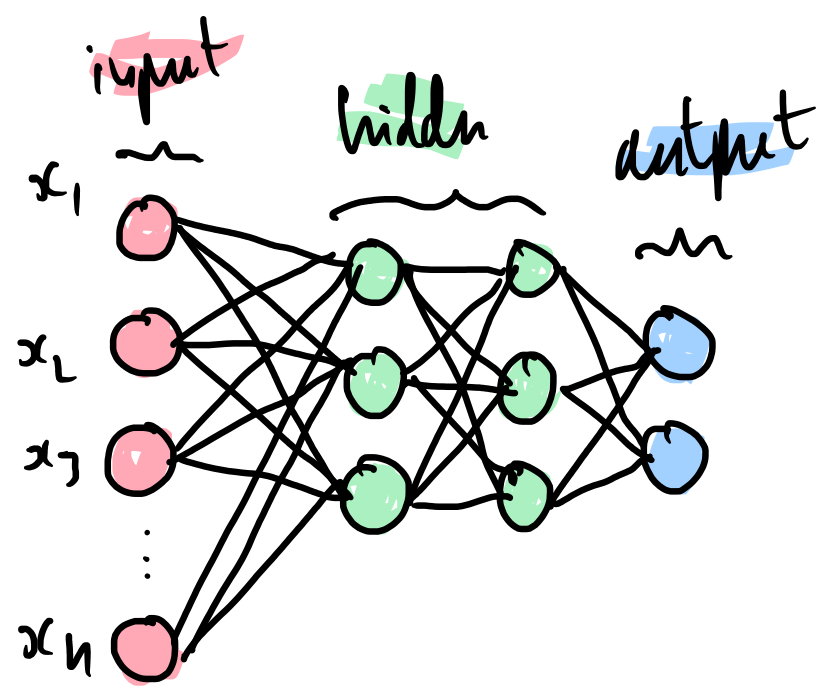 input
hidden
output
x₁
x₂
x₃
⋮
xₙ